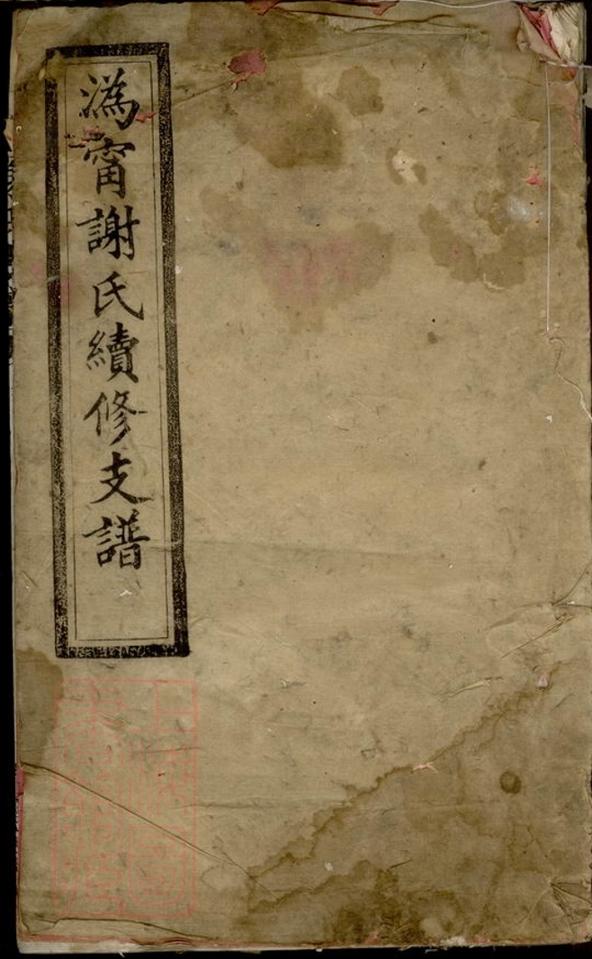 溈甯謝氏續修支譜